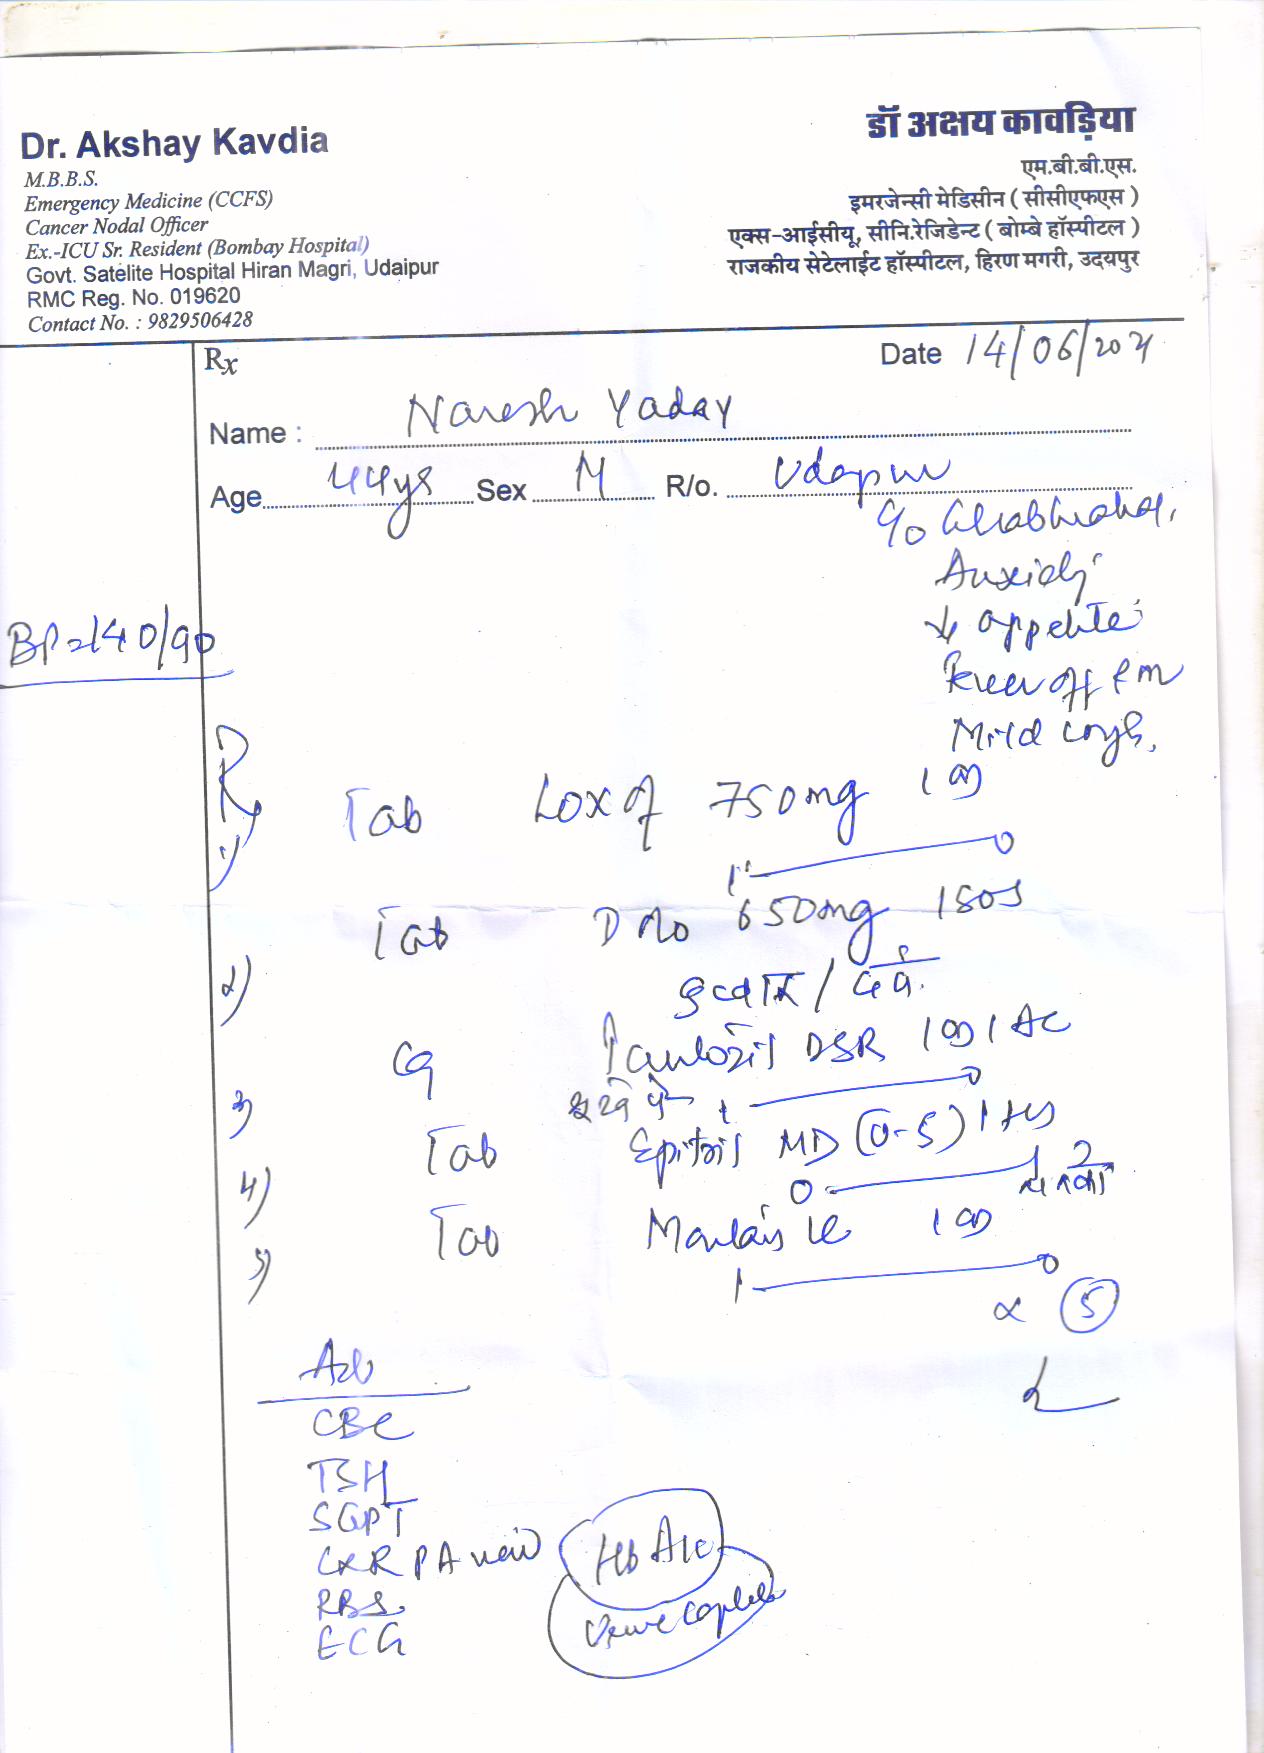 Dr. Akshay Kavdia
M.B.B.S.
Emergency Medicine (CCFS)
Cancer Nodal Officer
Ex.-ICU Sr. Resident (Bombay Hospital)
Govt. Satelite Hospital Hiran Magri, Udaipur
RMC Reg. No. 019620
Contact No. : 9829506428
डॉ अक्षय कावड़िया
एम.बी.बी.एस.
इमरजेन्सी मेडिसीन ( सीसीएफएस )
एक्स-आईसीयू, सीनि.रेजिडेन्ट ( बोम्बे हॉस्पीटल )
राजकीय सेटेलाईट हॉस्पीटल, हिरण मगरी, उदयपुर
Rx
Date 14/06/2021
Name : Naresh Yadav
Age 44yrs Sex M R/o. Udaipur
c/o Ghabhrahat,
Anxiety
↓ appetite
Fever off & on
Mild cough.
BP=140/90
Rx
1) Tab Loxof 750mg 1 OD
1 — 0
2) Tab Dolo 650mg 1 SOS
बुखार / दर्द
3) Cap Pantozil DSR 1 OD 1 AC
1 — 0
4) Tab Epitril MD (0.5) 1 HS
0 — 1
5) Tab 1 OD
1 — 0
x 5
Adv
CBC
TSH
SGPT
CXR PA view
RBS
ECG
HbA1c
Urine complete